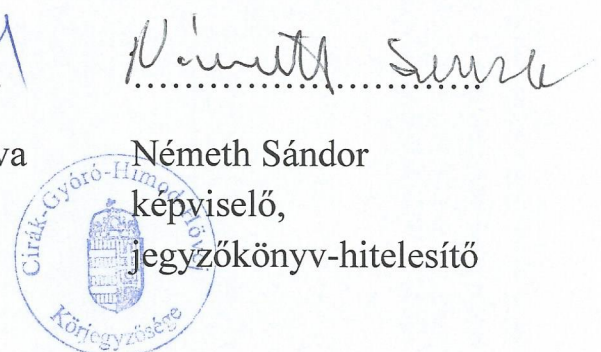 Németh
va Németh Sándor
képviselő,
jegyzőkönyv-hitelesítő
Cirák-Gyóró-Himod
Körjegyzősége